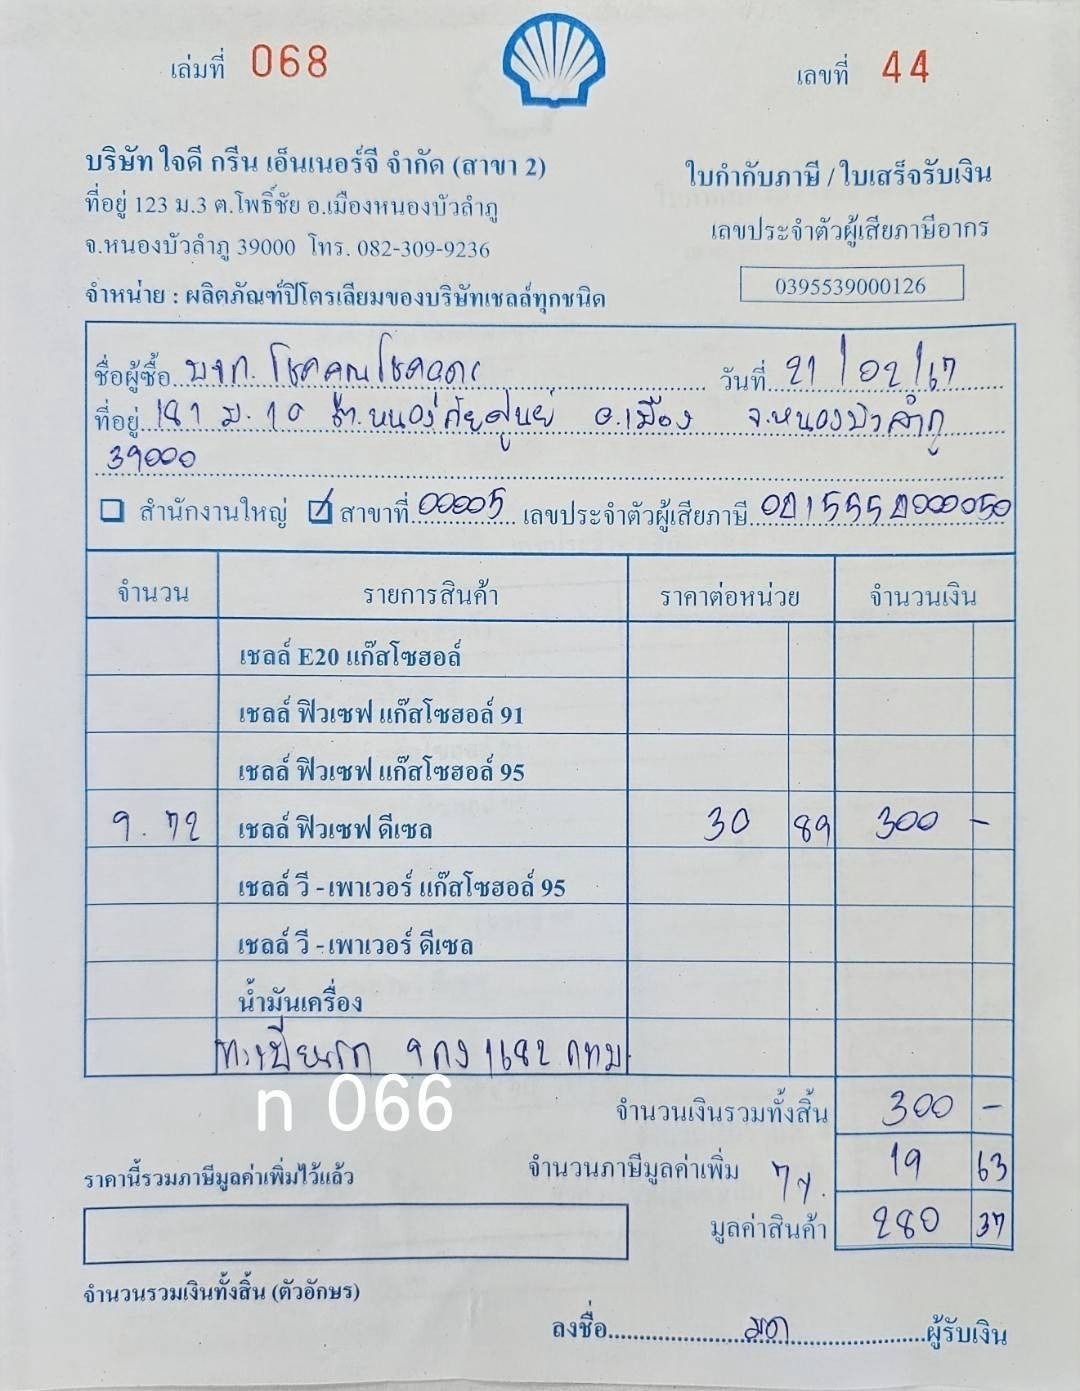 เล่มที่ 068
เลขที่ 44
บริษัท ใจดี กรีน เอ็นเนอร์จี จำกัด (สาขา 2)
ที่อยู่ 123 ม.3 ต.โพธิ์ชัย อ.เมืองหนองบัวลำภู
จ.หนองบัวลำภู 39000 โทร. 082-309-9236
จำหน่าย : ผลิตภัณฑ์ปิโตรเลียมของบริษัทเชลล์ทุกชนิด
ใบกำกับภาษี / ใบเสร็จรับเงิน
เลขประจำตัวผู้เสียภาษีอากร
0395539000126
ชื่อผู้ซื้อ บจก. โชคคุณโชคอดร วันที่ 21/02/67
ที่อยู่ 181 ม.10 ต.หนองภัยศูนย์ อ.เมือง จ.หนองบัวลำภู
39000
สำนักงานใหญ่ สาขาที่ 00005 เลขประจำตัวผู้เสียภาษี
จำนวน รายการสินค้า ราคาต่อหน่วย จำนวนเงิน
เชลล์ E20 แก๊สโซฮอล์
เชลล์ ฟิวเซฟ แก๊สโซฮอล์ 91
เชลล์ ฟิวเซฟ แก๊สโซฮอล์ 95
9.72 เชลล์ ฟิวเซฟ ดีเซล 30 89 300 -
เชลล์ วี - เพาเวอร์ แก๊สโซฮอล์ 95
เชลล์ วี - เพาเวอร์ ดีเซล
น้ำมันเครื่อง
ทะเบียนรถ 9กง 1682 กทม
n 066
จำนวนเงินรวมทั้งสิ้น 300 -
ราคานี้รวมภาษีมูลค่าเพิ่มไว้แล้ว
จำนวนภาษีมูลค่าเพิ่ม 7%. 19 63
มูลค่าสินค้า 280 37
จำนวนรวมเงินทั้งสิ้น (ตัวอักษร)
ลงชื่อ ผู้รับเงิน